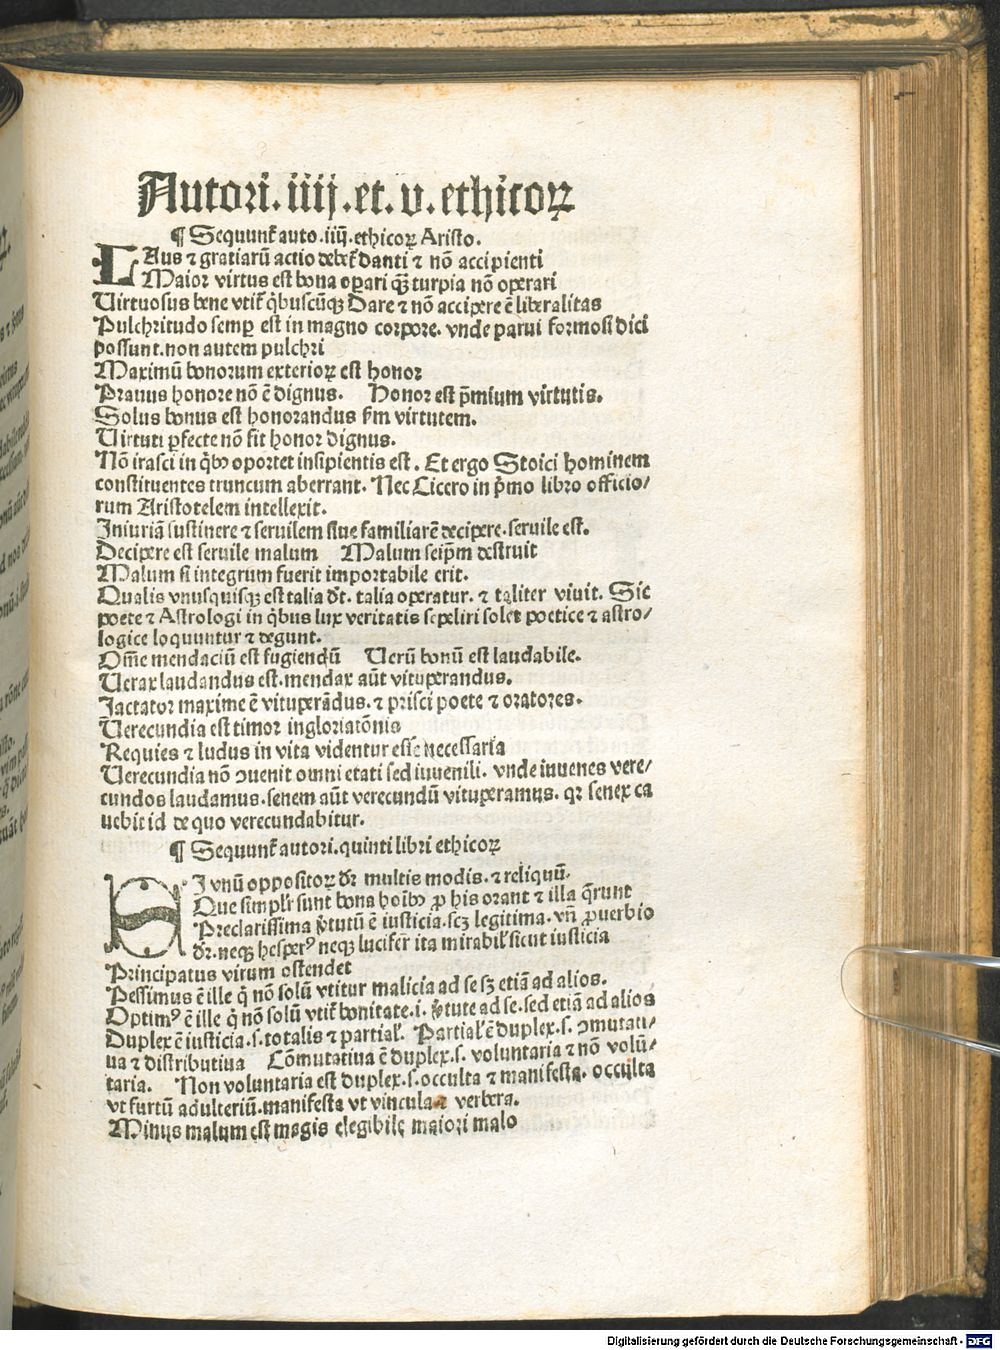 Autori. iiij. et. v. ethicoꝝ
¶ Sequunt᷑ auto. iiij. ethicoꝝ Aristo.
LAus ⁊ gratiarū actio debet᷑ danti ⁊ nō accipienti
Maior virtus est bona oꝑari qꝫ̄ turpia nō operari
Uirtuosus bene vtit᷑ q̇buscūqꝫ Dare ⁊ nō accipere ē liberalitas
Pulchritudo semꝑ est in magno corpore. vnde parui formosi dici
possunt. non autem pulchri
Maximū bonorum exterioꝝ est honor
Prauus honore nō ē dignus. Honor est p̄mium virtutis.
Solus bonus est honorandus ẜm virtutem.
Uirtuti ꝑfecte nō fit honor dignus.
Nō irasci in q̇bꝰ oportet insipientis est. Et ergo Stoici hominem
constituentes truncum aberrant. Nec Cicero in p̄mo libro officio/
rum Aristotelem intellexit.
Iniuriā sustinere ⁊ seruilem siue familiarē decipere. seruile est.
Decipere est seruile malum Malum seip̄m destruit
Malum si integrum fuerit importabile erit.
Qualis vnusquisqꝫ est talia dt̄. talia operatur. ⁊ taliter viuit. Sic
poete ⁊ Astrologi in q̇bus lux veritatis sepeliri solet poetice ⁊ astro/
logice loquuntur ⁊ degunt.
Om̄e mendaciū est fugiendū Uerū bonū est laudabile.
Uerax laudandus est. mendax aūt vituperandus.
Iactator maxime ē vituperādus. ⁊ prisci poete ⁊ oratores.
Uerecundia est timor ingloriatōnis
Requies ⁊ ludus in vita videntur esse necessaria
Uerecundia nō ꝯuenit omni etati sed iuuenili. vnde iuuenes vere/
cundos laudamus. senem aūt verecundū vituperamus. qꝛ senex ca
uebit id de quo verecundabitur.
¶ Sequunt᷑ autori. quinti libri ethicoꝝ
SI vnū oppositoꝝ dr̄ multis modis. ⁊ reliquū.
Que simplr̄ sunt bona hoībꝰ ꝓ his orant ⁊ illa q̄runt
Preclarissima v̄tutū ē iusticia. scꝫ legitima. vn̄ ꝓuerbio
dr̄. neqꝫ hesperꝰ neqꝫ lucifer ita mirabil' sicut iusticia
Principatus virum ostendet
Pessimus ē ille q̇ nō solū vtitur malicia ad se sꝫ etiā ad alios.
Optimꝰ ē ille q̇ nō solū vtit᷑ bonitate. i. v̄tute ad se. sed etiā ad alios
Duplex ē iusticia. s. totalis ⁊ partial'. Partial' ē duplex. s. ꝯmutati/
ua ⁊ distributiua Cōmutatiua ē duplex. s. voluntaria ⁊ nō volū/
taria. Non voluntaria est duplex. s. occulta ⁊ manifesta. occulta
vt furtū adulteriū. manifesta vt vincula ⁊ verbera.
Minus malum est magis elegibile maiori malo
Digitalisierung gefördert durch die Deutsche Forschungsgemeinschaft - DFG